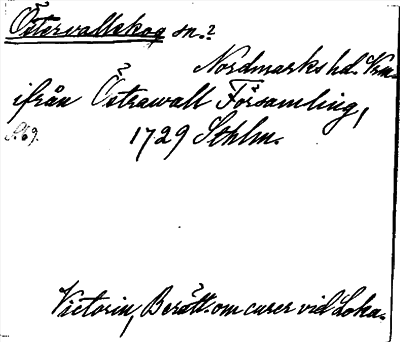 Östervallskog sn.?
Nordmarks hd. Vrm.
ifrån Östrawall Församling,
1729 Sthlm.
Victorin, Berätt. om curer vid Loka.